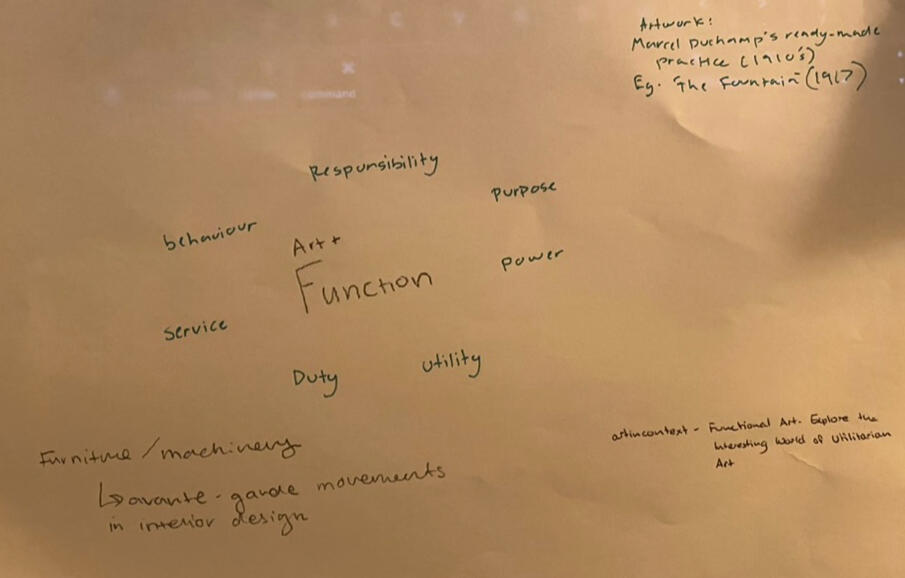 Artwork:
Marcel Duchamp's ready-made
practice (1910's)
Eg. "The Fountain" (1917)
Responsibility
purpose
behaviour
Art +
Function
power
service
Duty
utility
Furniture/machinery
↳ avante-garde movements
in interior design
artincontext - Functional Art. Explore the
Interesting World of Utilitarian
Art
command